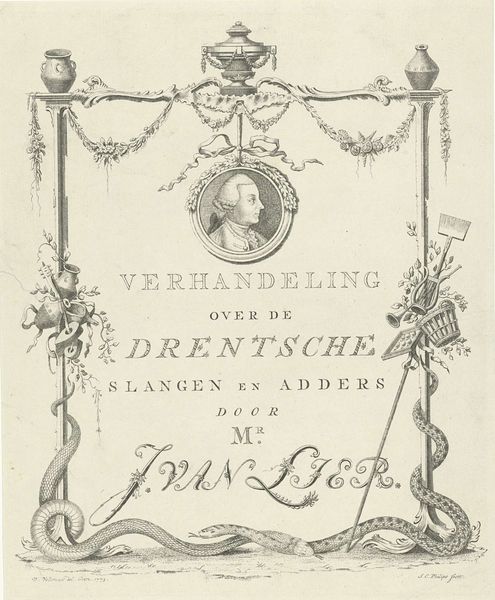 VERHANDELING
OVER DE
DRENTSCHE
SLANGEN EN ADDERS
DOOR
MR.
J. VAN LIER.
J. C. Philips fecit